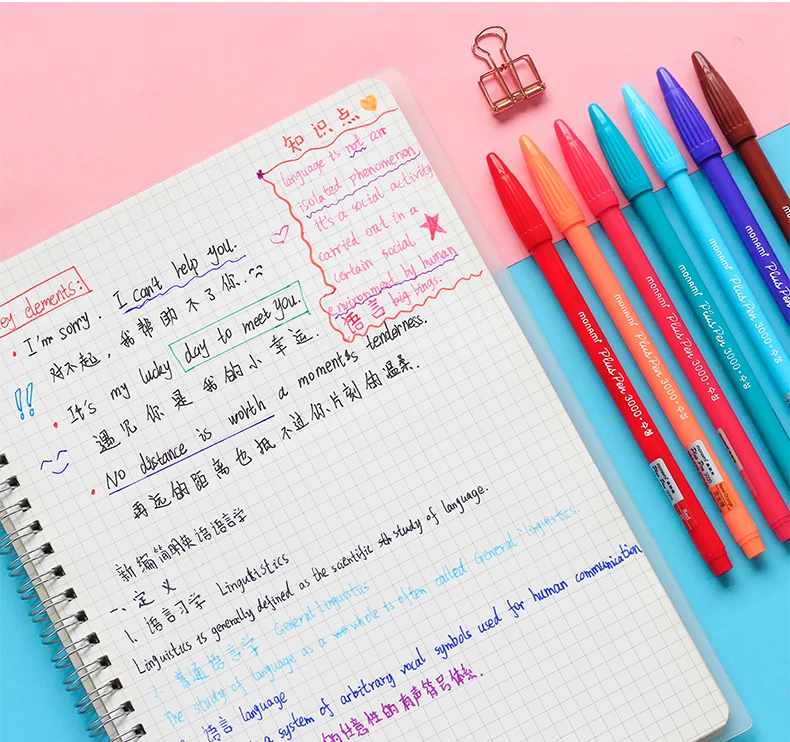 知识点
language is not an
isolated phenomenon
it's a social activity
carried out in a
certain social
environment by human
语言 big bings.
key elements:
I'm sorry. I can't help you.
对不起,我帮助不了你..
It's my lucky day to meet you.
遇见你是我的小幸运.
No distance is worth a moment's tenderness.
再远的距离也抵不过你片刻的温柔.
!!
新编简明英语语言学
一、定义
1. 语言习学 Linguitistics
Linguistics is generally defined as the scientific study of language.
2. 普通语言学 General Linguistics
The study of language as a whole is often called General linguistics.
语言 language
a system of arbitrary vocal symbols used for human communication
的任意性的有声符号体系.
monami Plus Pen 3000 · 수성
monami Plus Pen 3000 · 수성
monami Plus Pen 3000 · 수성
monami Plus Pen 3000 · 수성
monami Plus Pen 3000 · 수성
monami Plus Pen
monami